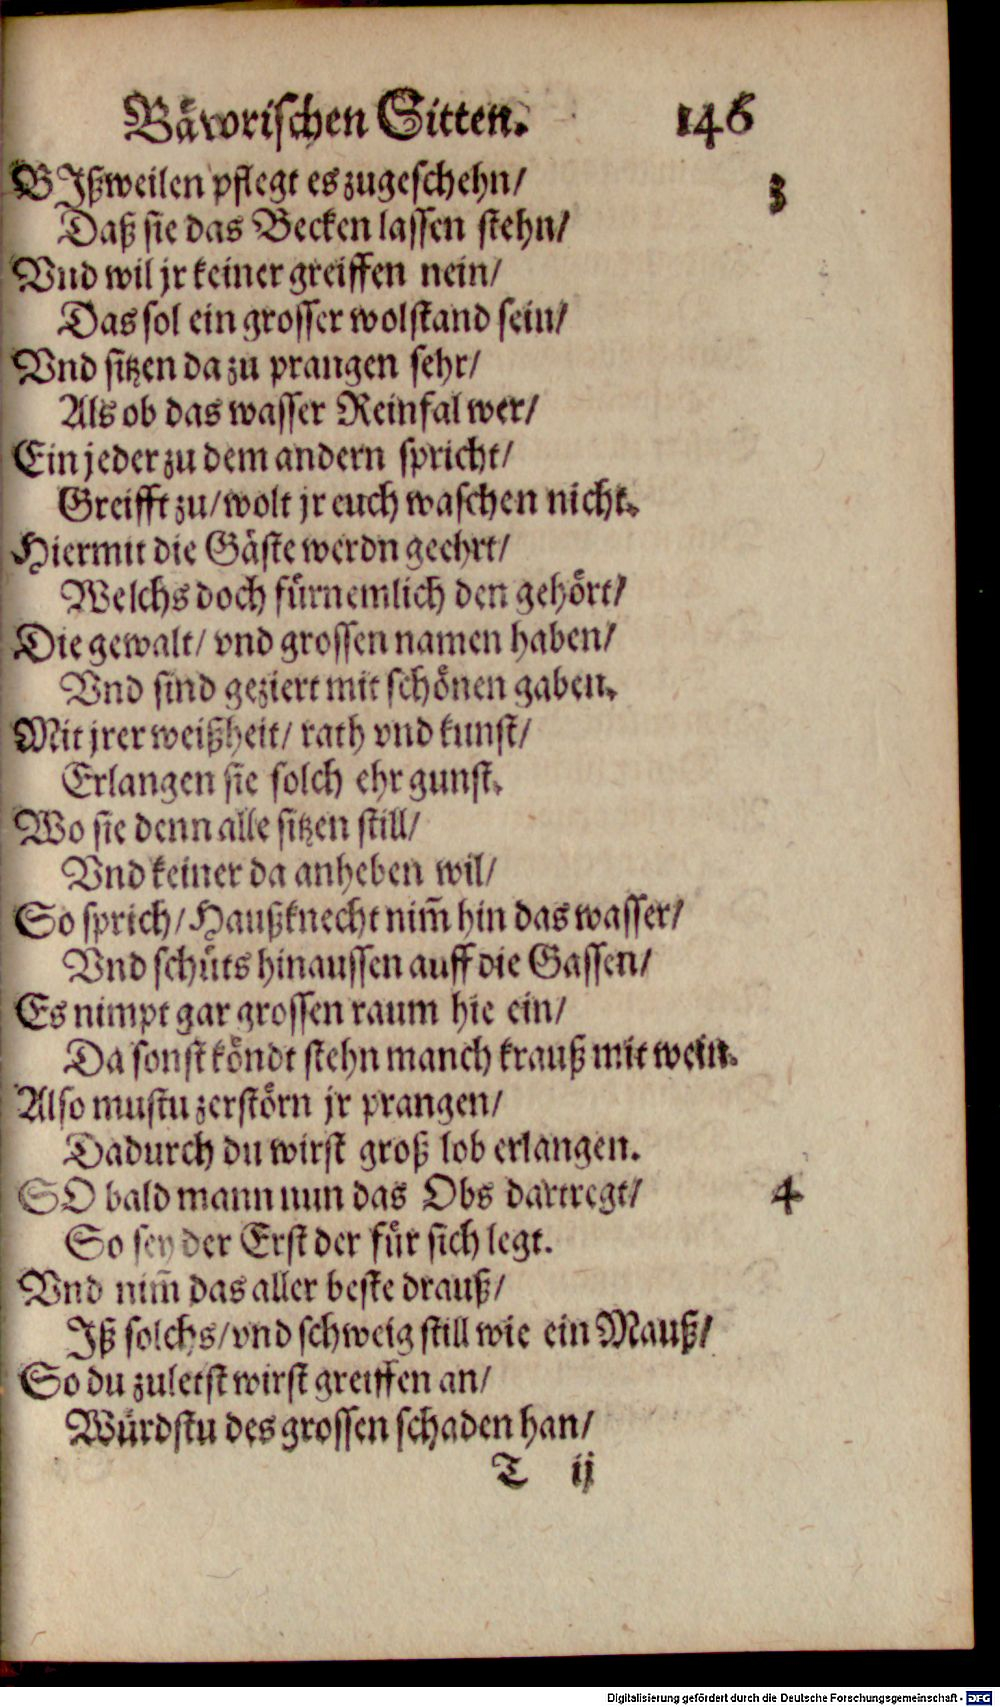 Bäwrischen Sitten. 146
BJßweilen pflegt es zugeschehn/ 3
Daß sie das Becken lassen stehn/
Vnd wil jr keiner greiffen nein/
Das sol ein grosser wolstand sein/
Vnd sitzen da zu prangen sehr/
Als ob das wasser Reinfal wer/
Ein jeder zu dem andern spricht/
Greifft zu/ wolt jr euch waschen nicht.
Hiermit die Gäste werdn geehrt/
Welchs doch fürnemlich den gehört/
Die gewalt/ vnd grossen namen haben/
Vnd sind geziert mit schönen gaben.
Mit jrer weißheit/ rath vnd kunst/
Erlangen sie solch ehr gunst.
Wo sie denn alle sitzen still/
Vnd keiner da anheben wil/
So sprich/ Haußknecht nim̃ hin das wasser/
Vnd schüts hinaussen auff die Gassen/
Es nimpt gar grossen raum hie ein/
Da sonst köndt stehn manch krauß mit wein.
Also mustu zerstörn jr prangen/
Dadurch du wirst groß lob erlangen.
SO bald mann nun das Obs dartregt/ 4
So sey der Erst der für sich legt.
Vnd nim̃ das aller beste drauß/
Jß solchs/ vnd schweig still wie ein Mauß/
So du zuletst wirst greiffen an/
Würdstu des grossen schaden han/
T ij
Digitalisierung gefördert durch die Deutsche Forschungsgemeinschaft - DFG